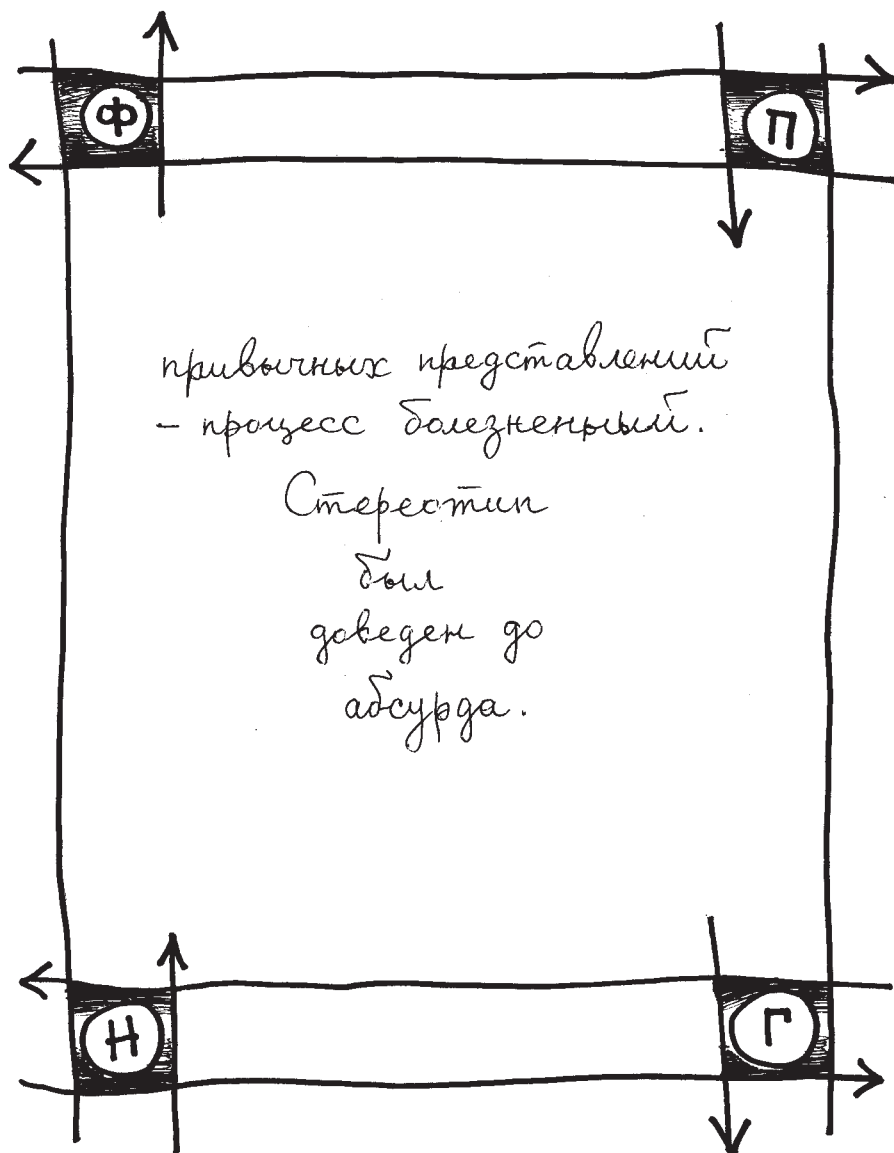 Ф П
привычных представлений
– процесс болезненный.
Стереотип
был
доведен до
абсурда.
Н Г